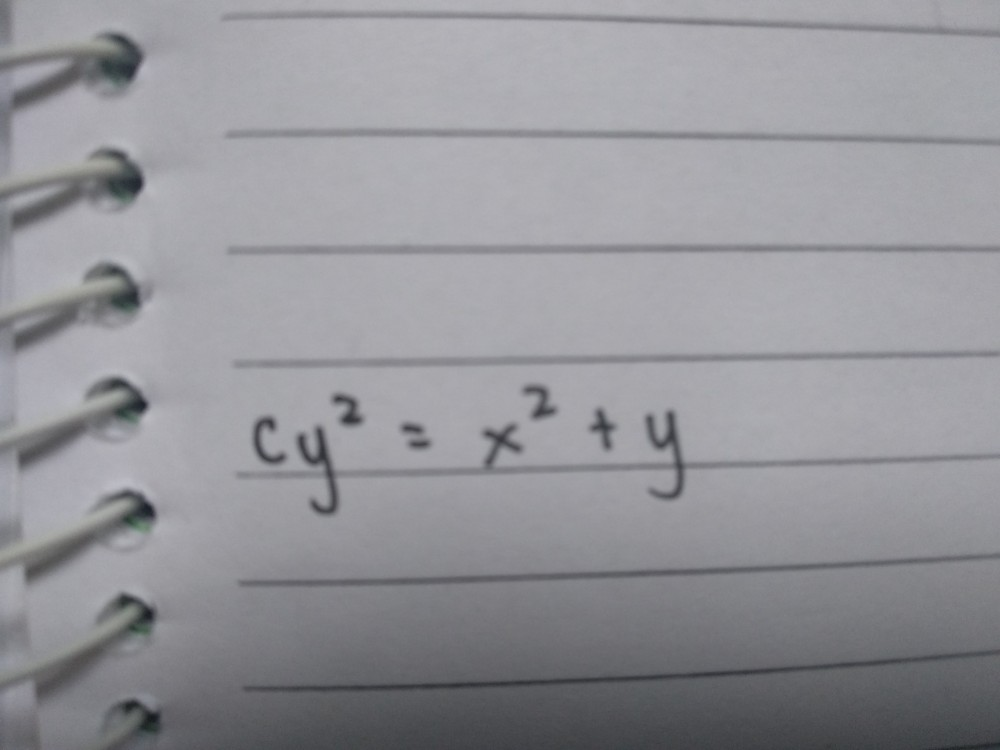 cy² = x² + y